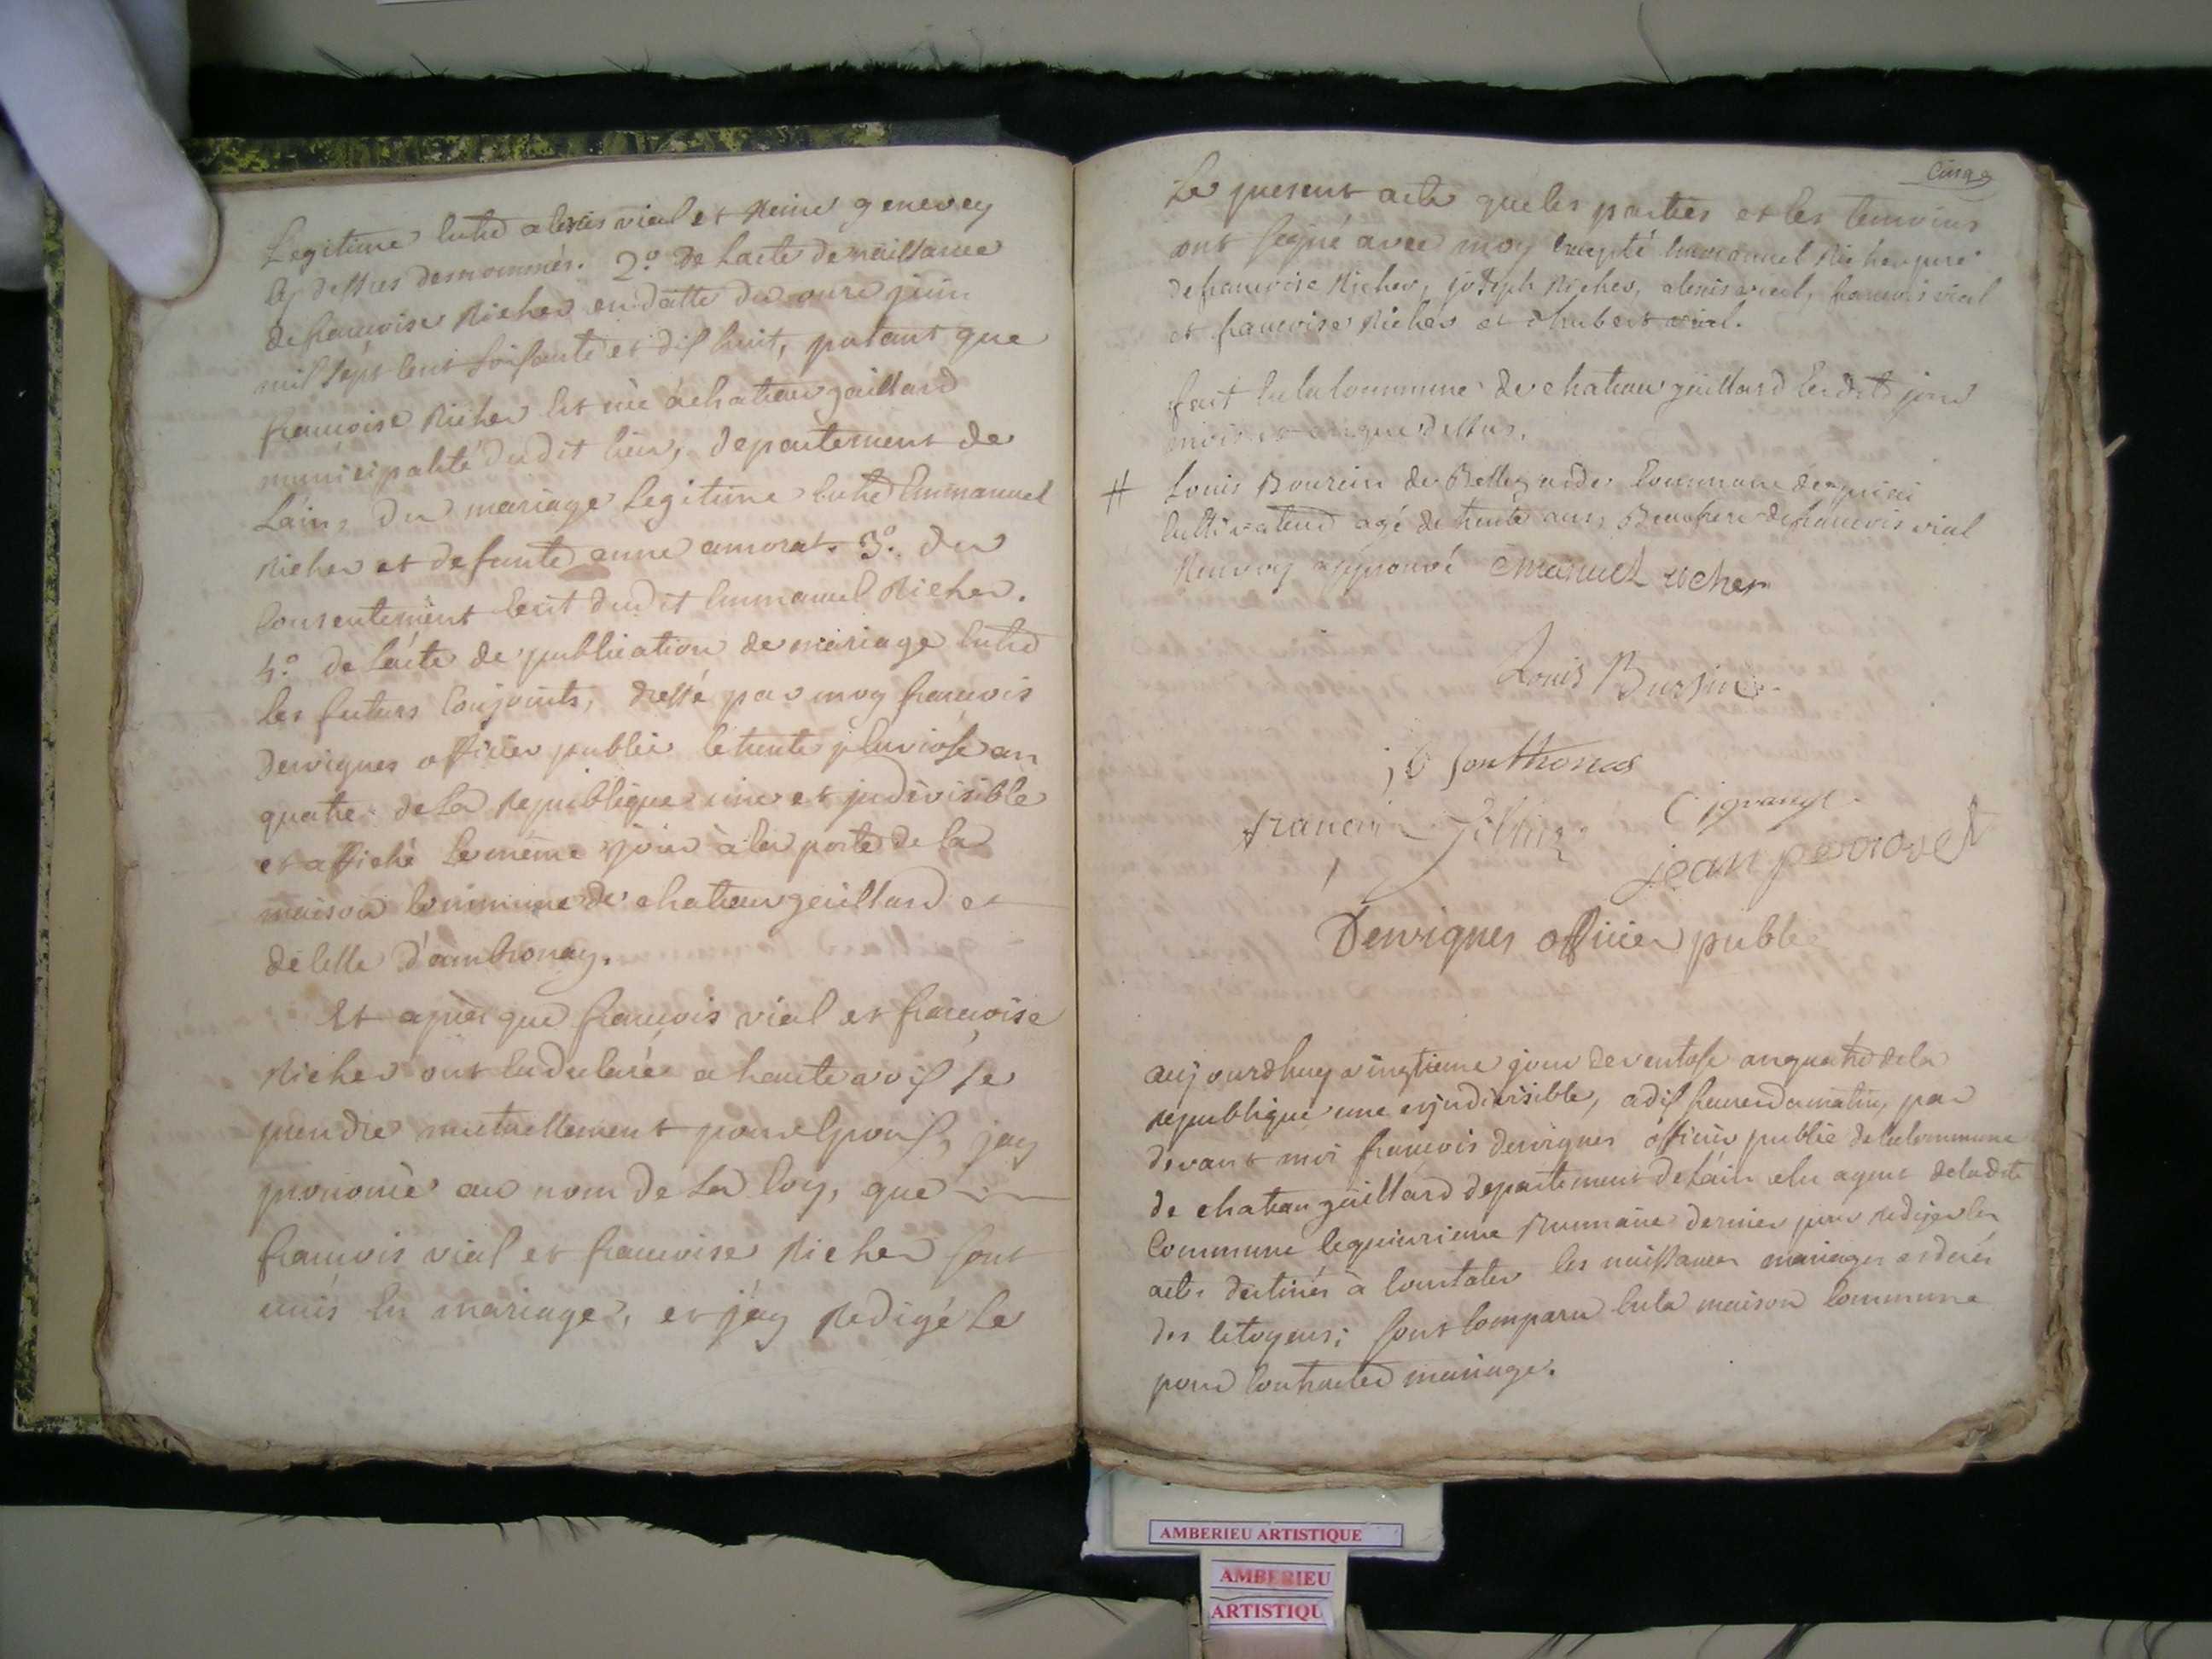 Legitime entre alexis vial et Reine genevey
cy dessus desnommés. 2.° de Lacte de naissance
de francoise Richer en datte du onze juin
mil sept cent soisante et dix huit, portant que
francoise Richer est née à chateau gaillard
municipalité dudit lieu, departement de
Lain, du mariage Legitime entre Emmanuel
Richer et defunte anne amorat. 3.° du
consentement ecrit dudit Emmanuel Richer.
4.° de Lacte de publication de mariage entre
les futurs conjoints, dressé par moy francois
Dervignes officier public le trente pluviose an
quatre de La Republique une et jndivisible
et affiché le même jour à la porte de la
maison commune de chateau gaillard et
de celle d'ambronay.
Et après que francois vial et francoise
Richer ont eu declaré a haute voix se
prendre mutuellement pour epoux, jay
prononcé au nom de La loy, que
francois vial et francoise Richer sont
unis en mariage, et jay Redigé Le
Cinq
Le present acte que les parties et les temoins
ont signé avec moy excepté Emmanuel Richer pere
de francoise Richer, joseph Richer, alexis vial, francois vial
et francoise Richer et hubert vial.
fait en la commune de chateau gaillard les dits jour
mois et an que dessus.
# Louis Boursin de Bellegarde commune de
cultivateur agé de trente ans, Beaufrere de francois vial
Renvoy approuvé Emanuel Richer
Louis Bursin
francois
C jgrange
jean perrovet
Dervignes officier public
aujourdhuy vingtieme jour de ventose an quatre de la
republique une et jndivisible, a dix heures du matin, par
devant moi francois Dervignes officier public de la commune
de chateau gaillard departement de Lain elu agent de ladite
Commune le quinzieme Brumaire dernier pour rediger les
actes destinés à constater les naissances mariages et decés
des citoyens; sont comparu en la maison commune
pour contracter mariage.
AMBERIEU ARTISTIQUE
AMBERIEU
ARTISTIQU